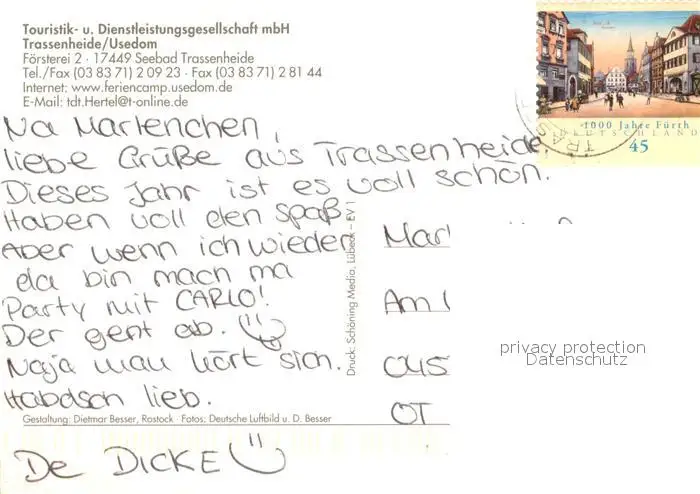 Touristik- u. Dienstleistungsgesellschaft mbH
Trassenheide/Usedom
Försterei 2 · 17449 Seebad Trassenheide
Tel./Fax (03 83 71) 2 09 23 · Fax (03 83 71) 2 81 44
Internet: www.feriencamp.usedom.de
E-Mail: tdt.Hertel@t-online.de
1000 Jahre Fürth
DEUTSCHLAND
45
Na Marlenchen,
liebe Grüße aus Trassenheide.
Dieses Jahr ist es voll schön.
Haben voll den Spaß.
Aber wenn ich wieder
da bin mach ma
Party mit CARLO!
Der geht ab.
Naja man hört sich.
Habdsch lieb.
De DICKE
Druck: Schöning Media, Lübeck – EV 1
Marl
Am
045
OT
privacy protection
Datenschutz
Gestaltung: Dietmar Besser, Rostock · Fotos: Deutsche Luftbild u. D. Besser